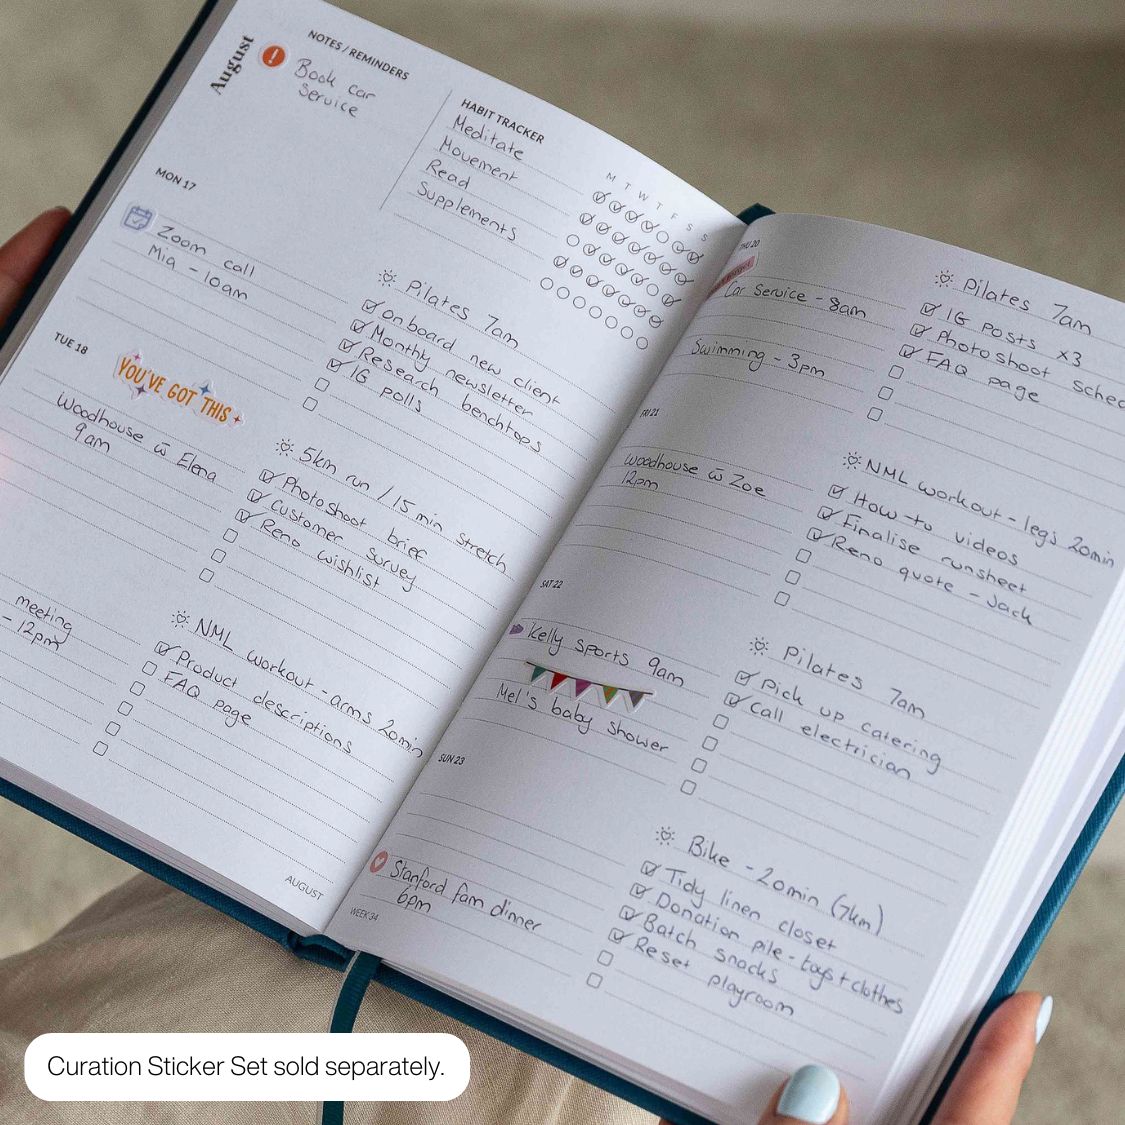 August
NOTES / REMINDERS
!
Book car
service
HABIT TRACKER
M T W T F S S
Meditate
Movement
Read
Supplements
MON 17
Zoom call
Mia - 10am
Pilates 7am
Onboard new client
Monthly newsletter
Research benchtops
IG polls
TUE 18
YOU'VE GOT THIS
Woodhouse w̄ Elena
9am
5km run / 15 min stretch
Photoshoot brief
Customer survey
Reno wishlist
meeting
- 12pm
NML workout - arms 20min
Product descriptions
FAQ page
AUGUST
THU 20
Car service - 8am
Swimming - 3pm
Pilates 7am
IG posts x3
Photoshoot sched
FAQ page
FRI 21
Woodhouse w̄ Zoe
12pm
NML workout - legs 20min
How-to videos
Finalise runsheet
Reno quote - Jack
SAT 22
Kelly sports 9am
Mel's baby shower
Pilates 7am
Pick up catering
Call electrician
SUN 23
Stanford fam dinner
6pm
Bike - 20min (7km)
Tidy linen closet
Donation pile - toys + clothes
Batch snacks
Reset playroom
WEEK 34
Curation Sticker Set sold separately.